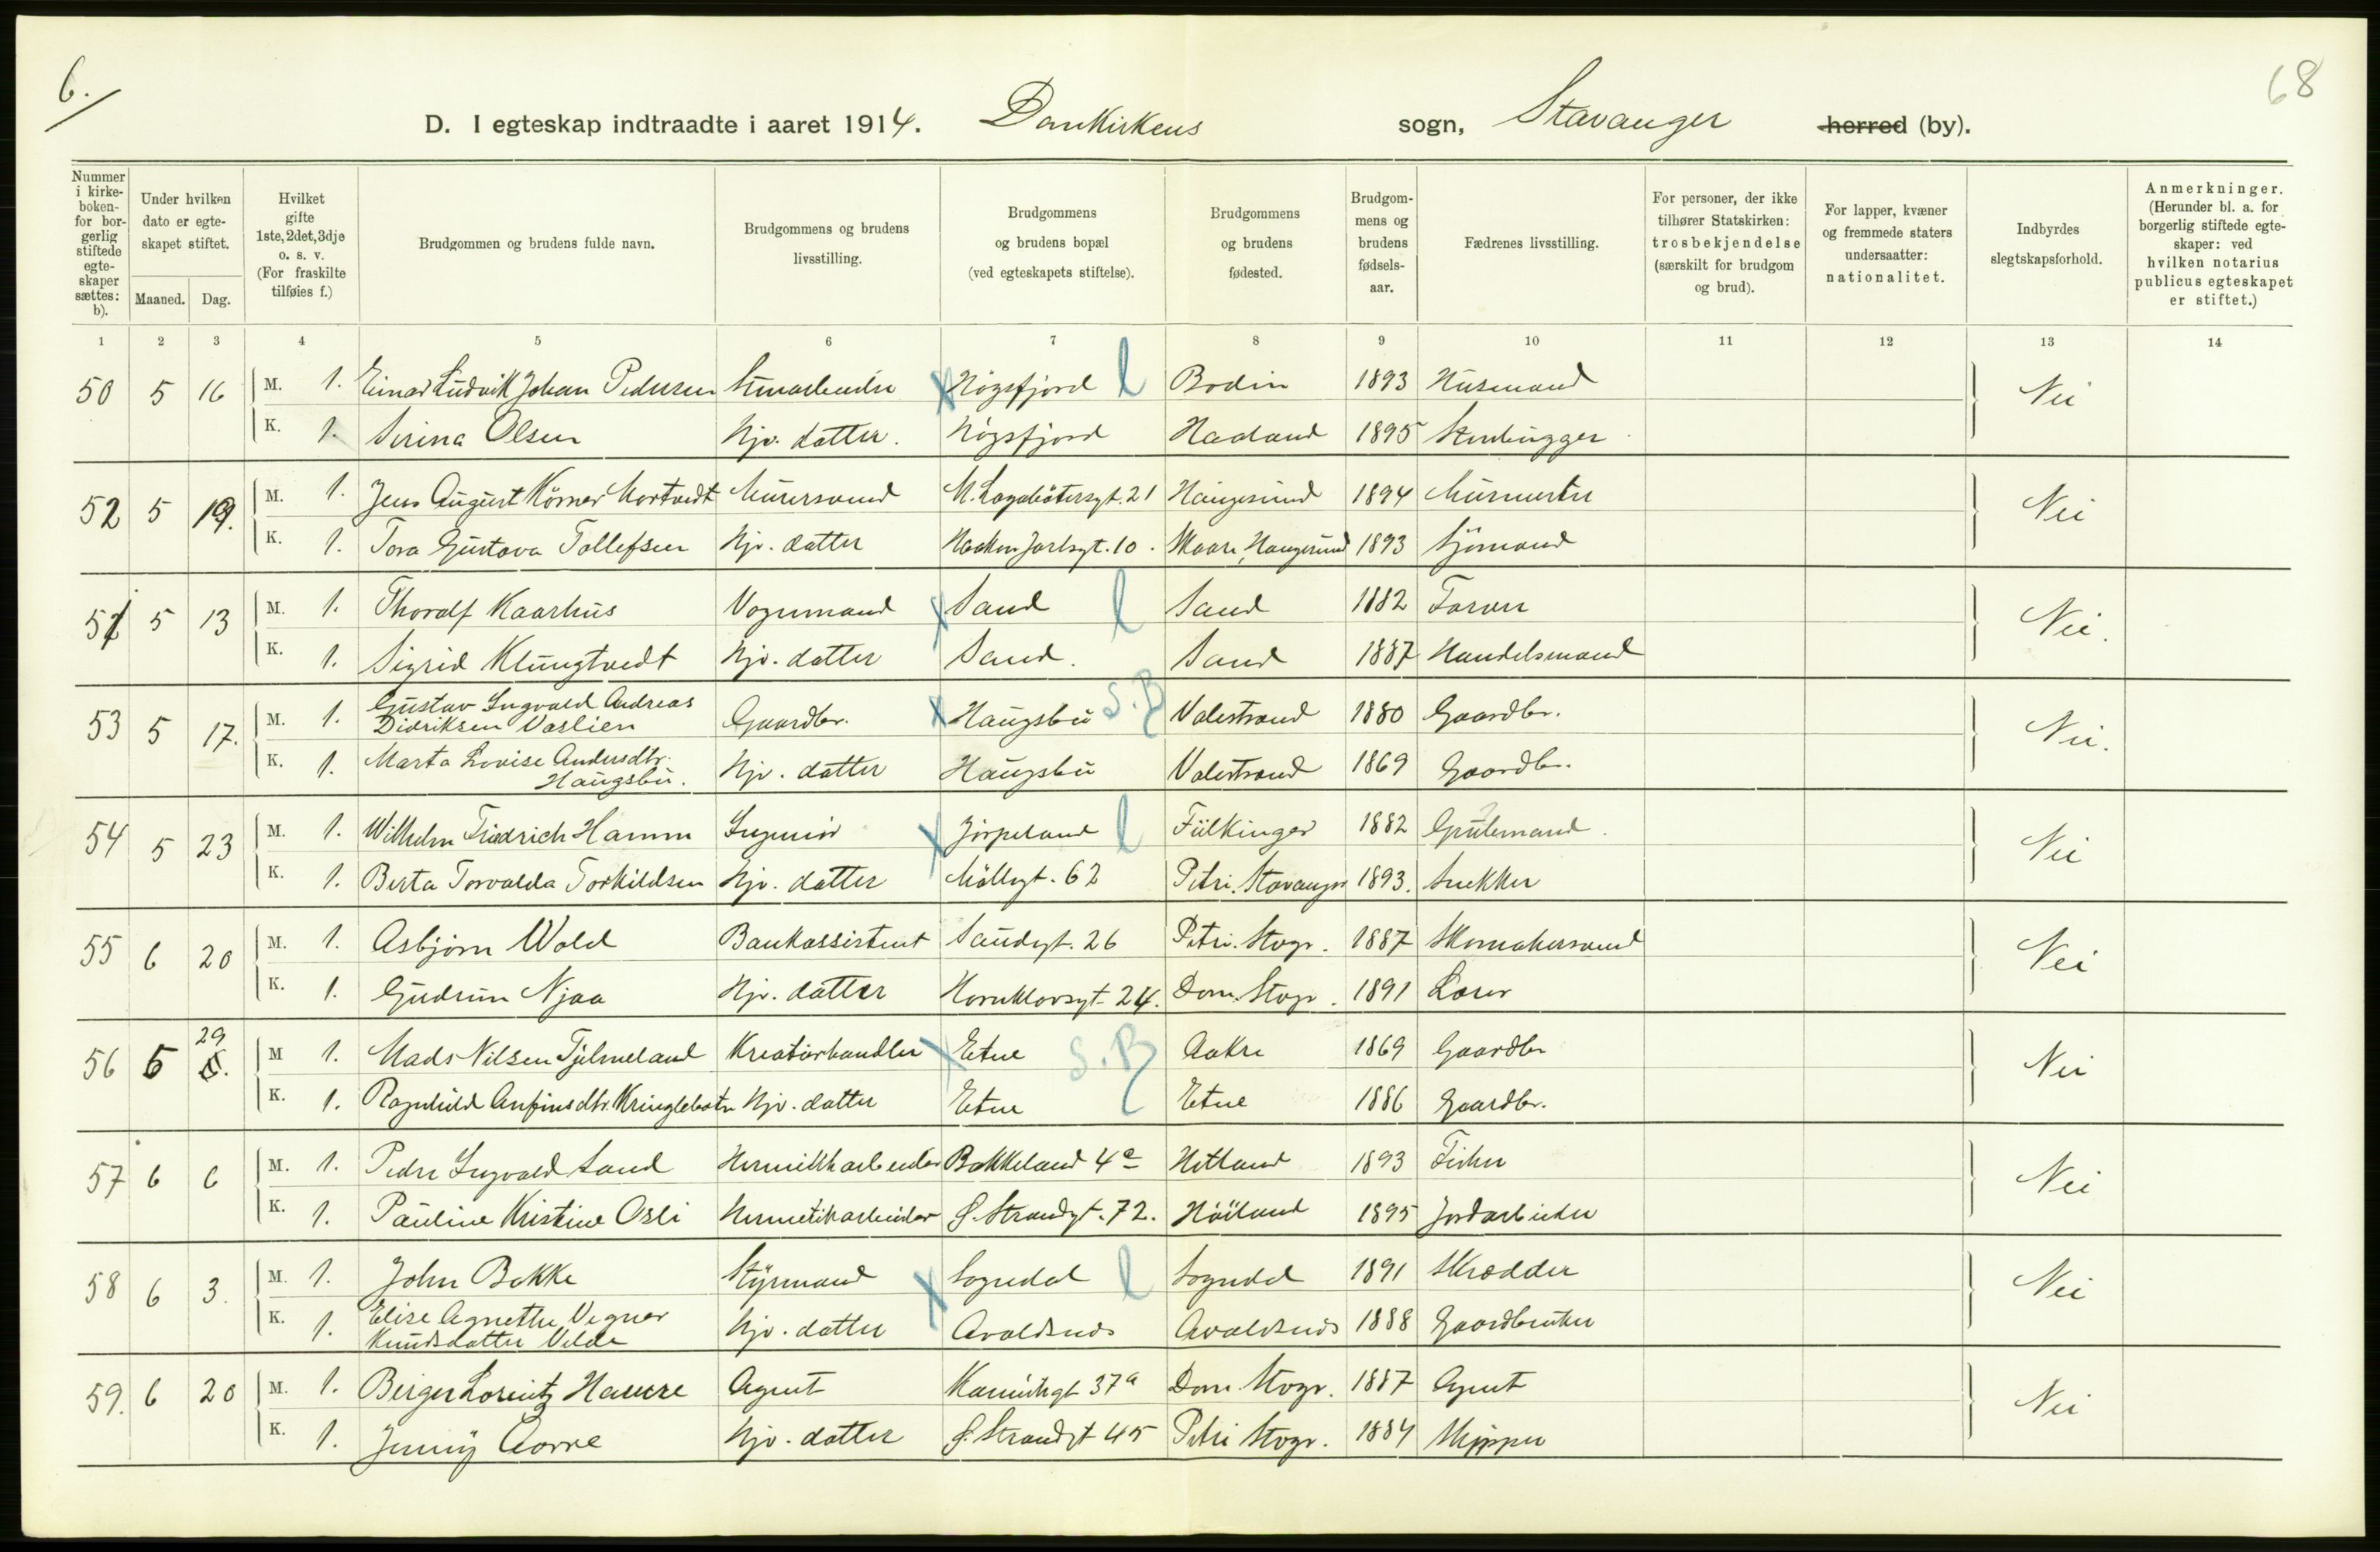 6.
68
D. I egteskap indtraadte i aaret 1914. Domkirkens sogn, Stavanger herred (by).
Nummer i kirke-boken- for bor-gerlig stiftede egte-skaper sættes: b).
Under hvilken dato er egte-skapet stiftet.
Maaned. Dag.
Hvilket gifte 1ste, 2det, 3dje o. s. v. (For fraskilte tilføies f.)
Brudgommen og brudens fulde navn.
Brudgommens og brudens livsstilling.
Brudgommens og brudens bopæl (ved egteskapets stiftelse).
Brudgommens og brudens fødested.
Brudgom-mens og brudens fødsels-aar.
Fædrenes livsstilling.
For personer, der ikke tilhører Statskirken: trosbekjendelse (særskilt for brudgom og brud).
For lapper, kvæner og fremmede staters undersaatter: nationalitet.
Indbyrdes slegtskapsforhold.
Anmerkninger. (Herunder bl. a. for borgerlig stiftede egte-skaper: ved hvilken notarius publicus egteskapet er stiftet.)
1 2 3 4 5 6 7 8 9 10 11 12 13 14
50 5 16 M. 1. Einar Ludvik Johan Pedersen Stenarbeider Høgsfjord l Bodin 1893 Husmand Nei
K. 1. Serina Olsen Hjv. datter. Høgsfjord Haaland 1895 Stenhugger
52 5 19. M. 1. Jens August Körner Mortvedt Murersvend M. Haugesund 1894 Murmester Nei
K. 1. Tora Gustava Tollefsen Hjv. datter Haakon Jarlsgt. 10. Skaare, Haugesund 1893 Sjömand
51 5 13 M. 1. Thoralf Kaarhus Vognmand Sand l Sand 1882 Farver Nei.
K. 1. Sigrid Klungtvedt Hjv. datter Sand. Sand 1887 Handelsmand
53 5 17. M. 1. Gustav Ingvald Andreas Didriksen Vaslien Gaardbr. Haugsbu S.B Valestrand 1880 Gaardbr. Nei.
K. 1. Marta Lovise Andersdtr. Haugsbu. Hjv. datter Haugsbu Valestrand 1869 Gaardbr.
54 5 23 M. 1. Wilhelm Friedrich Hamm Ingeniör Jörpeland l 1882 Nei
K. 1. Berta Torvalda Torkildsen Hjv. datter Möllegt. 62 Petri. Stavanger 1893. Snekker
55 6 20 M. 1. Asbjörn Wold Bankassistent Sandgt. 26 Petri. Stvgr. 1887 Skomakersvend Nei
K. 1. Gudrun Njaa Hjv. datter Hornklovsgt. 24. Dom. Stvgr. 1891 Lærer
56 5 29 M 1. Mads Nilsen Tjelmeland Kreaturhandler Etne S.B Aakre 1869 Gaardbr Nei
K. 1. Ragnhild Anfinsdtr. Kringlebotn Hjv. datter Etne Etne 1886 Gaardbr.
57 6 6 M. 1. Peder Ingvald Sand Hermetikkarbeider Bakkeland 4 Hetland 1893 Fisker Nei
K. 1. Pauline Kristine Osli Hermetikarbeider St. Strandgt. 72. Höiland 1895 Jordarbeider
58 6 3. M. 1. John Bakke Styrmand Sogndal l Sogndal 1891 Skrædder Nei
K. 1. Elise Agnethe Vegner Knudsdatter Velde Hjv. datter Avaldsnes Avaldsnes 1888 Gaardbruker
59. 6 20 M. 1. Berger Lorentz Hauere Agent 37a Dom Stvgr. 1887 Agent Nei
K. 1. Jenny Aarre Hjv. datter St. Strandgt 45 Petri Stvgr. 1884 Skipper